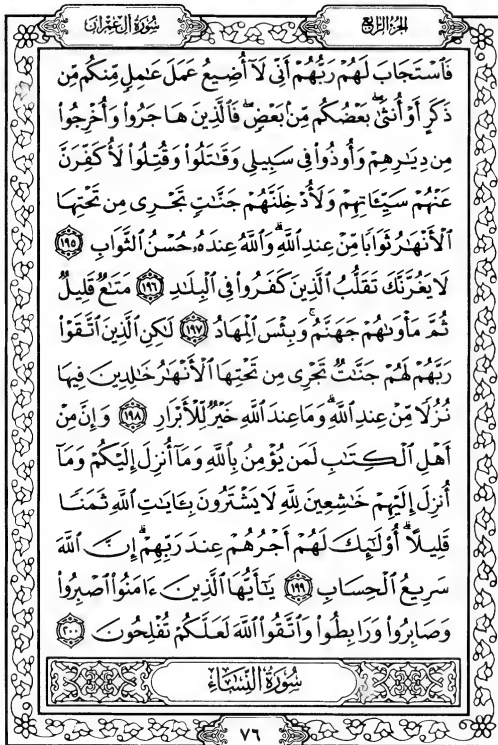 سُورَةُ آلِ عِمْرَان
الجُزْءُ الرَّابِعُ
فَاسْتَجَابَ لَهُمْ رَبُّهُمْ أَنِّي لَا أُضِيعُ عَمَلَ عَامِلٍ مِنكُم مِّن
ذَكَرٍ أَوْ أُنثَىٰ بَعْضُكُم مِّنْ بَعْضٍ فَالَّذِينَ هَاجَرُوا وَأُخْرِجُوا
مِن دِيَارِهِمْ وَأُوذُوا فِي سَبِيلِي وَقَاتَلُوا وَقُتِلُوا لَأُكَفِّرَنَّ
عَنْهُمْ سَيِّئَاتِهِمْ وَلَأُدْخِلَنَّهُمْ جَنَّاتٍ تَجْرِي مِن تَحْتِهَا
الْأَنْهَارُ ثَوَابًا مِّنْ عِندِ اللَّهِ وَاللَّهُ عِندَهُ حُسْنُ الثَّوَابِ ١٩٥
لَا يَغُرَّنَّكَ تَقَلُّبُ الَّذِينَ كَفَرُوا فِي الْبِلَادِ ١٩٦ مَتَاعٌ قَلِيلٌ
ثُمَّ مَأْوَاهُمْ جَهَنَّمُ وَبِئْسَ الْمِهَادُ ١٩٧ لَٰكِنِ الَّذِينَ اتَّقَوْا
رَبَّهُمْ لَهُمْ جَنَّاتٌ تَجْرِي مِن تَحْتِهَا الْأَنْهَارُ خَالِدِينَ فِيهَا
نُزُلًا مِّنْ عِندِ اللَّهِ وَمَا عِندَ اللَّهِ خَيْرٌ لِّلْأَبْرَارِ ١٩٨ وَإِنَّ مِنْ
أَهْلِ الْكِتَابِ لَمَن يُؤْمِنُ بِاللَّهِ وَمَا أُنزِلَ إِلَيْكُمْ وَمَا
أُنزِلَ إِلَيْهِمْ خَاشِعِينَ لِلَّهِ لَا يَشْتَرُونَ بِآيَاتِ اللَّهِ ثَمَنًا
قَلِيلًا أُولَٰئِكَ لَهُمْ أَجْرُهُمْ عِندَ رَبِّهِمْ إِنَّ اللَّهَ
سَرِيعُ الْحِسَابِ ١٩٩ يَا أَيُّهَا الَّذِينَ ءَامَنُوا اصْبِرُوا
وَصَابِرُوا وَرَابِطُوا وَاتَّقُوا اللَّهَ لَعَلَّكُمْ تُفْلِحُونَ ٢٠٠
سُورَةُ النِّسَاءِ
٧٦